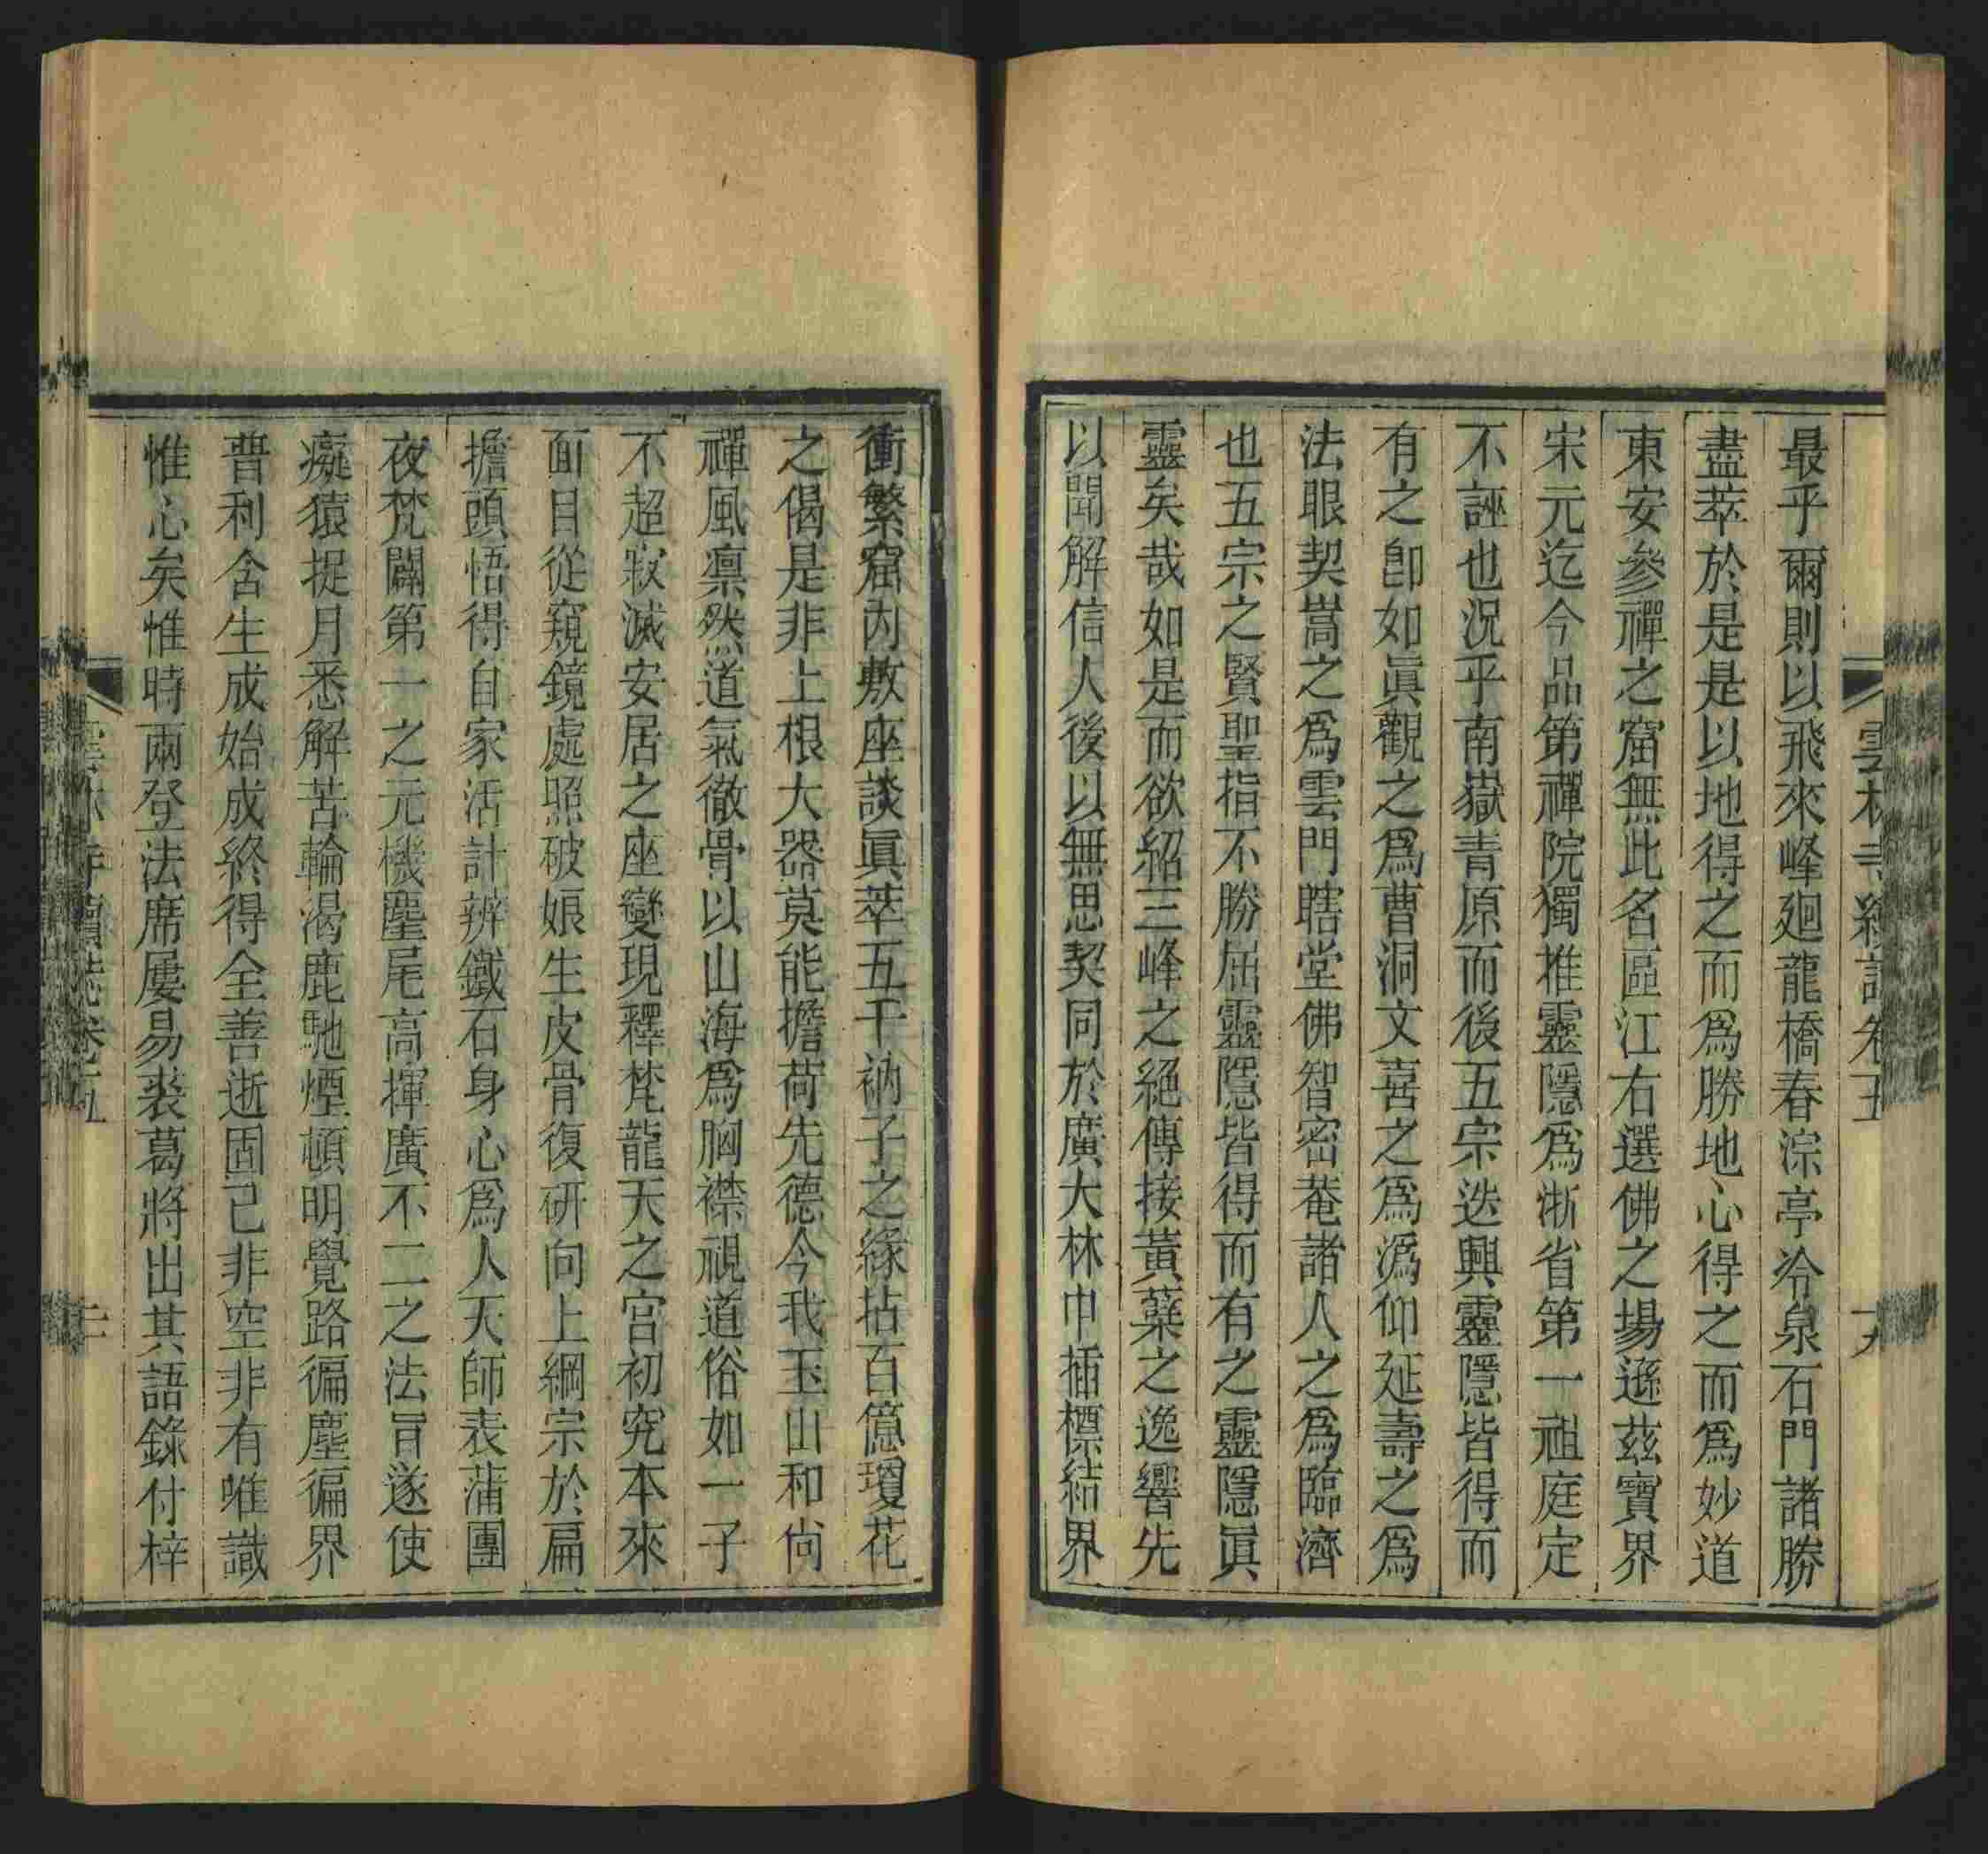 最乎爾則以飛來峰廻龍橋春淙亭冷泉石門諸勝
盡萃於是是以地得之而爲勝地心得之而爲妙道
東安參禪之窟無此名區江右選佛之場遜茲寶界
宋元迄今品第禪院獨推靈隱爲浙省第一祖庭定
不誣也況乎南嶽青原而後五宗迭興靈隱皆得而
有之卽如眞觀之爲曹洞文喜之爲溈仰延壽之爲
法眼契嵩之爲雲門瞎堂佛智密菴諸人之爲臨濟
也五宗之賢聖指不勝屈靈隱皆得而有之靈隱眞
靈矣哉如是而欲紹三峰之絕傳接黃蘗之逸響先
以聞解信人後以無思契同於廣大林中插標結界
衝繁窟內敷座談眞萃五千衲子之緣拈百億瓊花
之偈是非上根大器莫能擔荷先德今我玉山和尙
禪風凛然道氣徹骨以山海爲胸襟視道俗如一子
不超寂滅安居之座變現釋梵龍天之宮初究本來
面目從窺鏡處照破娘生皮骨復研向上綱宗於扁
擔頭悟得自家活計辨鐵石身心爲人天師表蒲團
夜梵闢第一之元機麈尾高揮廣不二之法旨遂使
癡猿捉月悉解苦輪渴鹿馳煙頓明覺路徧塵徧界
普利含生成始成終得全善逝固已非空非有唯識
惟心矣惟時兩登法席屢易裘葛將出其語錄付梓